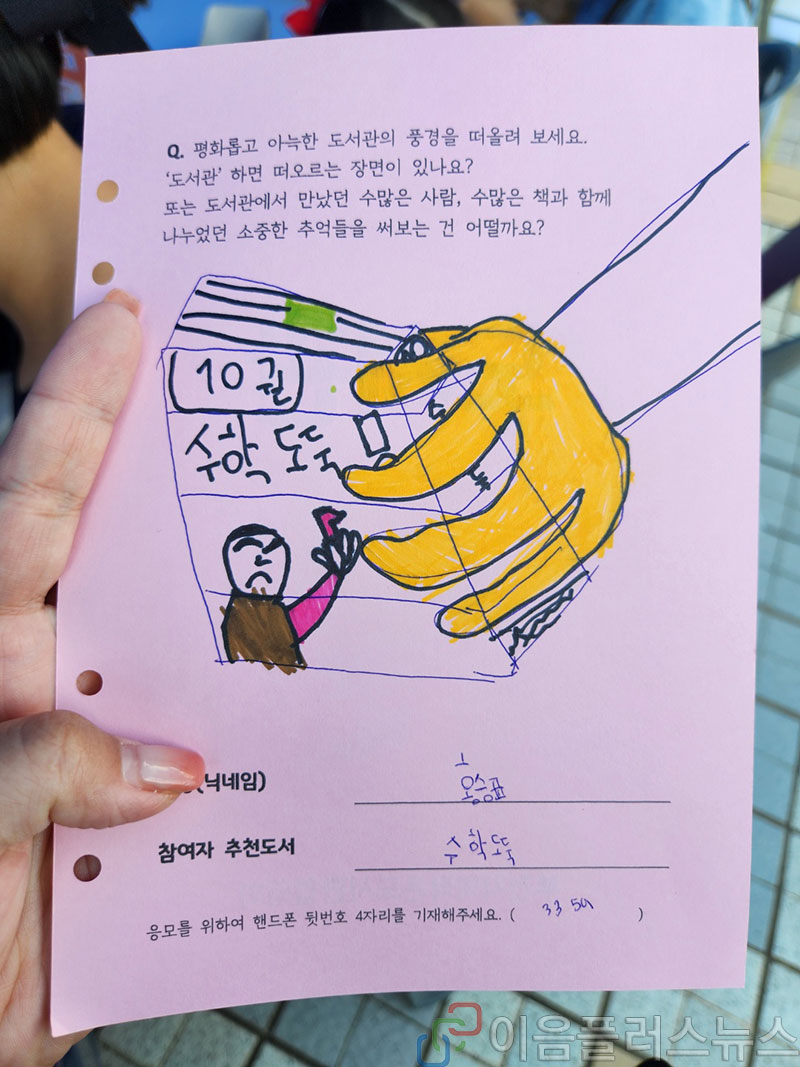 Q. 평화롭고 아늑한 도서관의 풍경을 떠올려 보세요.
‘도서관’ 하면 떠오르는 장면이 있나요?
또는 도서관에서 만났던 수많은 사람, 수많은 책과 함께
나누었던 소중한 추억들을 써보는 건 어떨까요?
10권
수학 도둑
(닉네임)
홍승표
참여자 추천도서
수학도둑
응모를 위하여 핸드폰 뒷번호 4자리를 기재해주세요. ( )
이음플러스뉴스